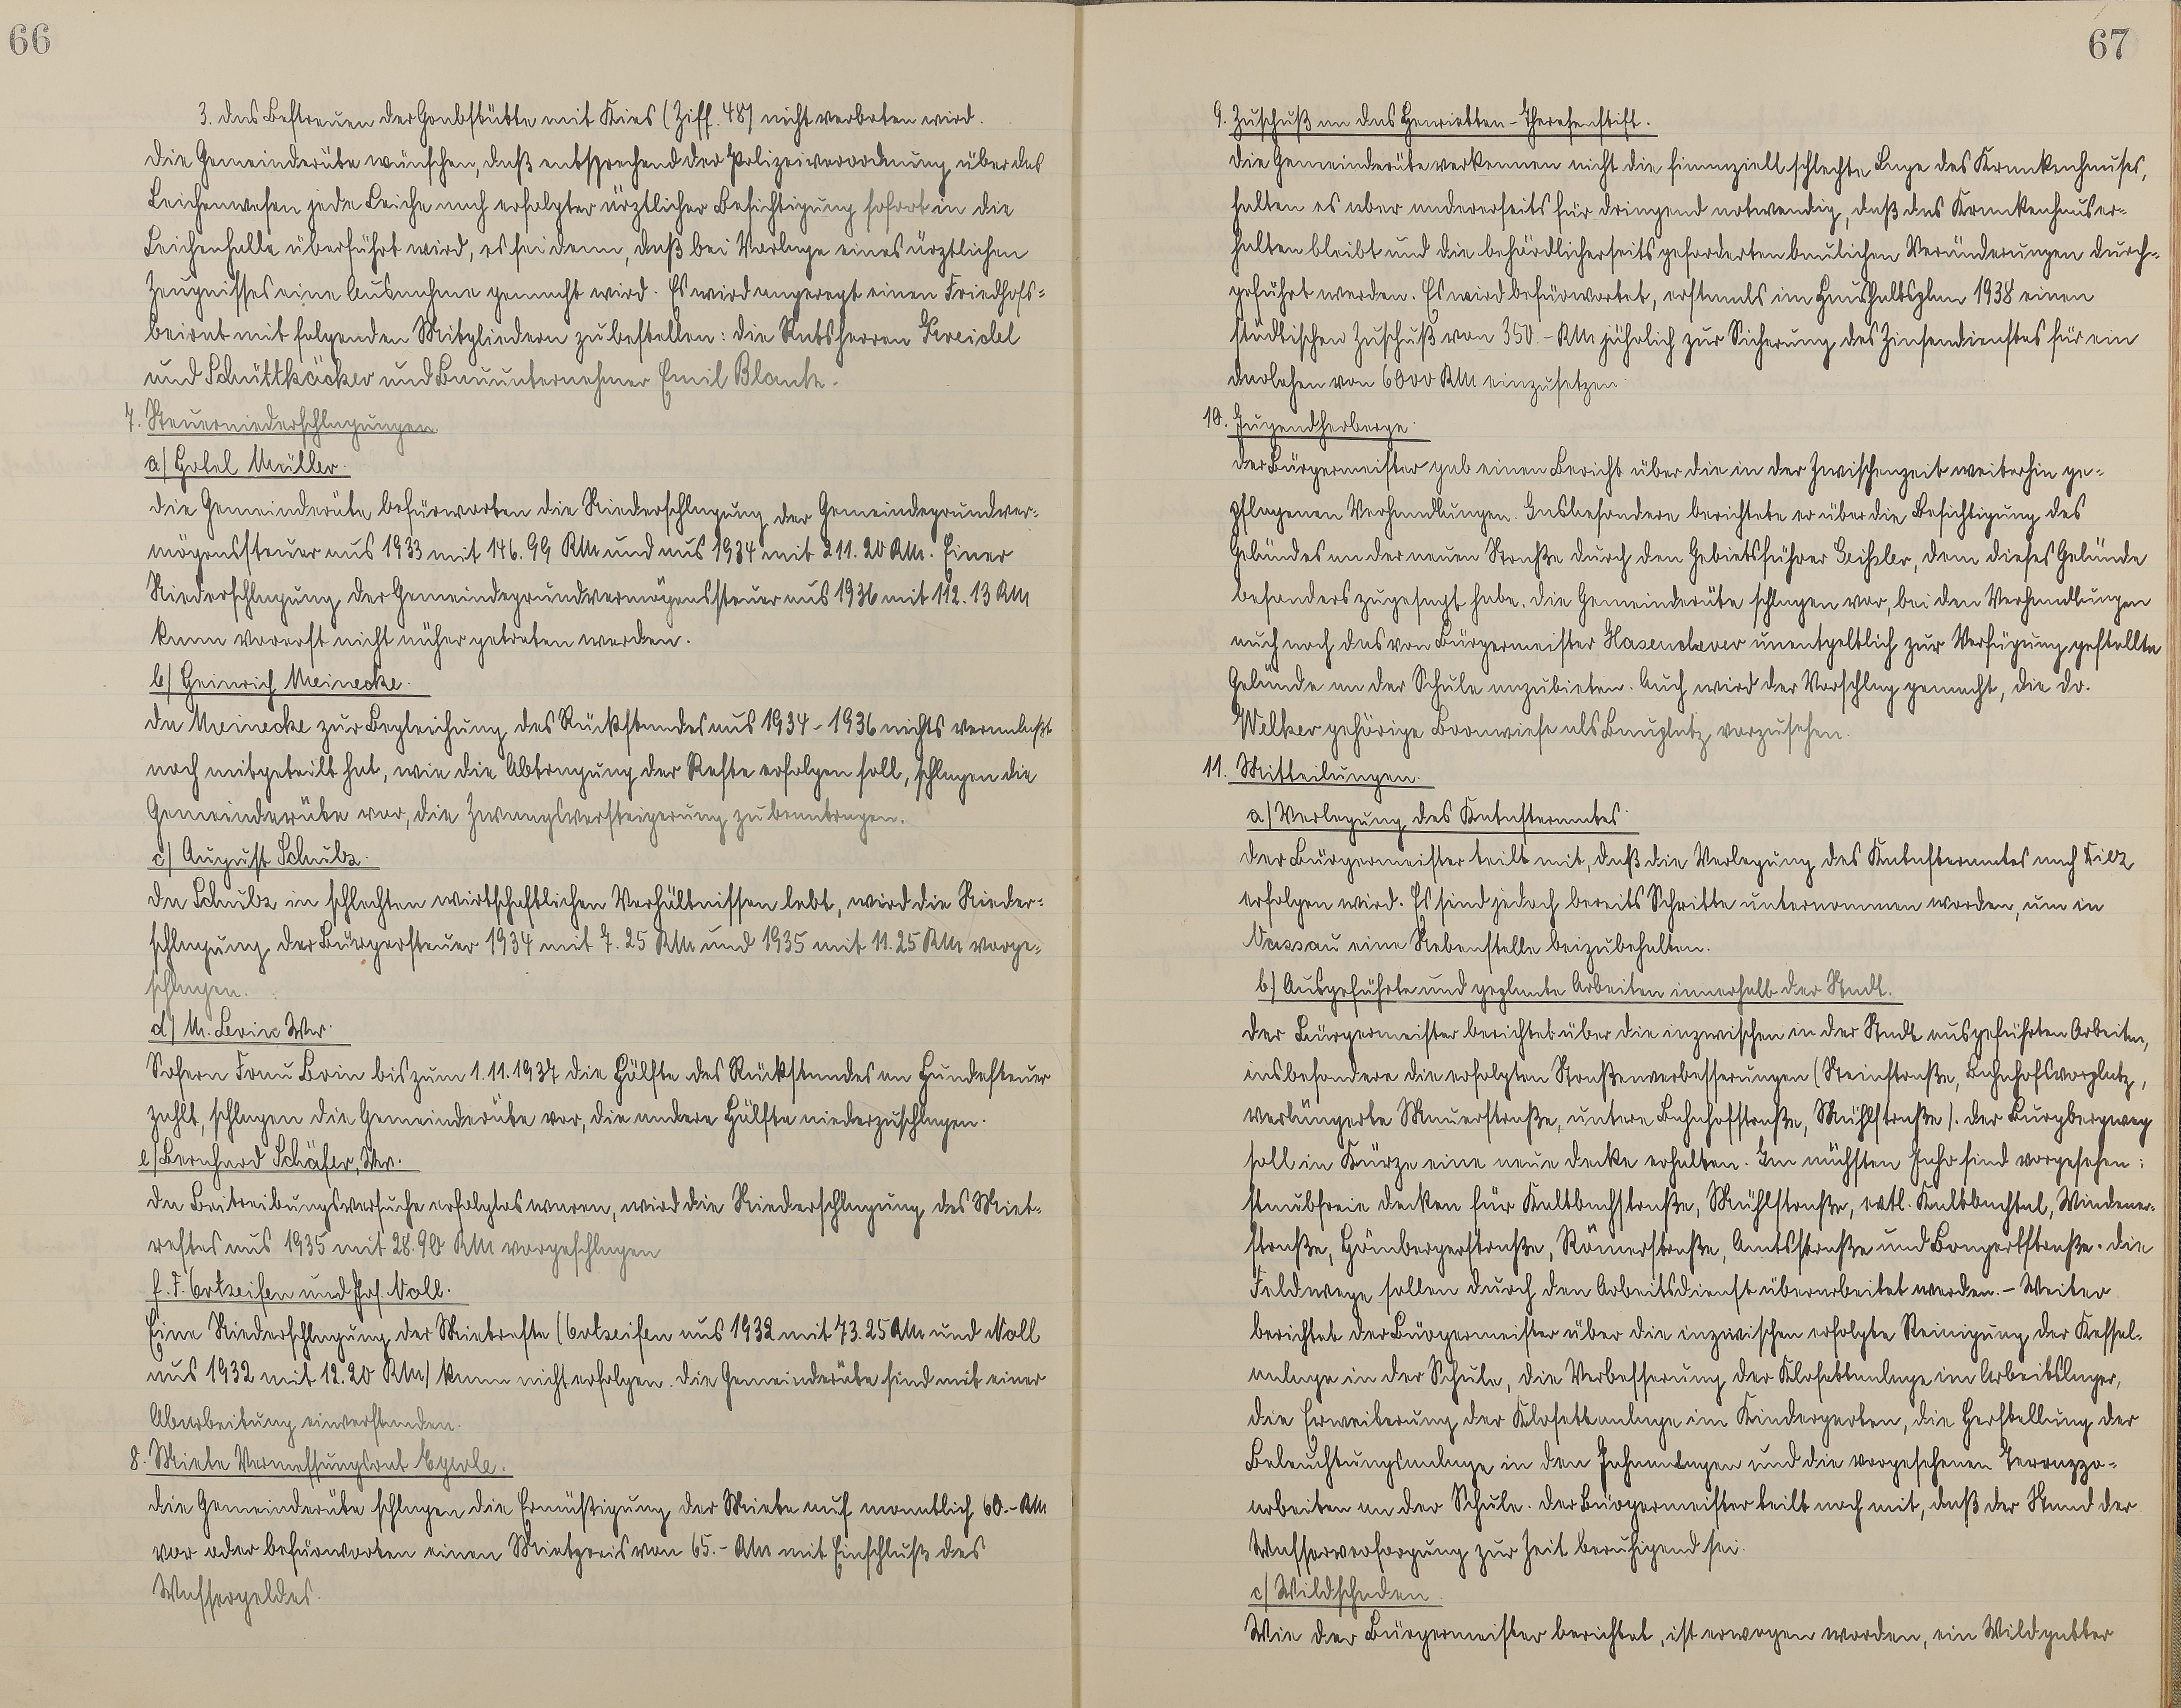 66
3. das Bestreuen der Grabstätte mit Kies (Ziff. 48) nicht verboten wird.
Die Gemeinderäte wünschen, daß entsprechend der Polizeiverordnung über das
Leichenwesen jede Leiche nach erfolgter ärztlicher Besichtigung sofort in die
Leichenhalle überführt wird, es sei denn, daß bei Vorlage eines ärztlichen
Zeugnisses eine Ausnahme gemacht wird. Es wird angeregt einen Friedhofs-
beirat mit folgenden Mitgliedern zu bestellen: die Ratsherren Kreidel
und Schüttkäcker und Bauunternehmer Emil Blank.
7. Steuerniederschlagungen.
a) Hotel Müller.
Die Gemeinderäte befürworten die Niederschlagung der Gemeindegrundver-
mögenssteuer aus 1933 mit 146.99 RM und aus 1934 mit 211.20 RM. Einer
Niederschlagung der Gemeindegrundvermögenssteuer aus 1936 mit 112.13 RM
kann vorerst nicht näher getreten werden.
b) Heinrich Meinecke.
Da Meinecke zur Begleichung des Rückstandes aus 1934-1936 nichts veranlaßt
noch mitgeteilt hat, wie die Abtragung der Reste erfolgen soll, schlagen die
Gemeinderäte vor, die Zwangsversteigerung zu beantragen.
c) August Schulz.
Da Schulz in schlechten wirtschaftlichen Verhältnissen lebt, wird die Nieder-
schlagung der Bürgersteuer 1934 mit 7.25 RM und 1935 mit 11.25 RM vorge-
schlagen.
d) M. Levin Ww.
Sofern Frau Levin bis zum 1.11.1937 die Hälfte des Rückstandes an Hundesteuer
zahlt, schlagen die Gemeinderäte vor, die andere Hälfte niederzuschlagen.
e) Bernhard Schäfer, Ww.
Da Beitreibungsversuche erfolglos waren, wird die Niederschlagung des Miet-
restes aus 1935 mit 28.90 RM vorgeschlagen
f. F. Ortseifen und Jos. Noll.
Eine Niederschlagung der Mietreste (Ortseifen aus 1932 mit 73.25 RM und Noll
aus 1932 mit 12.20 RM) kann nicht erfolgen. Die Gemeinderäte sind mit einer
Abarbeitung einverstanden.
8. Miete Vermessungsrat Eyerle.
Die Gemeinderäte schlagen die Ermäßigung der Miete auf monatlich 60.- RM
vor oder befürworten einen Mietpreis von 65.- RM mit Einschluß des
Wassergeldes.
67
9. Zuschuß an das Henrietten-Theresenstift.
Die Gemeinderäte verkennen nicht die finanziell schlechte Lage des Krankenhauses,
halten es aber andererseits für dringend notwendig, daß das Krankenhaus er-
halten bleibt und die behördlicherseits geforderten baulichen Veränderungen durch-
geführt werden. Es wird befürwortet, erstmals im Haushaltsplan 1938 einen
städtischen Zuschuß von 350.- RM jährlich zur Sicherung des Zinsendienstes für ein
Darlehen von 6000 RM einzusetzen.
10. Jugendherberge.
Der Bürgermeister gab einen Bericht über die in der Zwischenzeit weiterhin ge-
pflogenen Verhandlungen. Insbesondere berichtete er über die Besichtigung des
Geländes an der neuen Straße durch den Gebietsführer, dem dieses Gelände
besonders zugesagt habe. Die Gemeinderäte schlagen vor, bei den Verhandlungen
auch noch das von Bürgermeister Hasenclever unentgeltlich zur Verfügung gestellte
Gelände an der Schule anzubieten. Auch wird der Vorschlag gemacht, die Dr.
Welker gehörige Boorwiese als Bauplatz vorzusehen.
11. Mitteilungen.
a) Verlegung des Katasteramtes.
Der Bürgermeister teilt mit, daß die Verlegung des Katasteramtes nach Diez
erfolgen wird. Es sind jedoch bereits Schritte unternommen worden, um in
Nassau eine Nebenstelle beizubehalten.
b.) Ausgeführte und geplante Arbeiten innerhalb der Stadt.
Der Bürgermeister berichtet über die inzwischen in der Stadt ausgeführten Arbeiten,
insbesondere die erfolgten Straßenverbesserungen (Steinstraße, Bahnhofsvorplatz,
verlängerte Mauerstraße, untere Bahnhofstraße, Mühlstraße). Der Burgbergweg
soll in Kürze eine neue Decke erhalten. Im nächsten Jahr sind vorgesehen:
staubfreie Decken für Kaltbachstraße, Mühlstraße, evtl. Kaltbachtal, Windener-
straße, Hömbergerstraße, Römerstraße, Amtsstraße und Bongertstraße. Die
Feldwege sollen durch den Arbeitsdienst überarbeitet werden. - Weiter
berichtet der Bürgermeister über die inzwischen erfolgte Reinigung der Kessel-
anlage in der Schule, die Verbesserung der Klosettanlage im Arbeitslager,
die Erweiterung der Klosettanlage im Kindergarten, die Herstellung der
Beleuchtungsanlage in den Jahnanlagen und die vorgesehenen Terrazzo-
arbeiten an der Schule. Der Bürgermeister teilt noch mit, daß der Stand der
Wasserversorgung zur Zeit beruhigend sei.
c) Wildschaden.
Wie der Bürgermeister berichtet, ist erwogen worden, ein Wildgatter